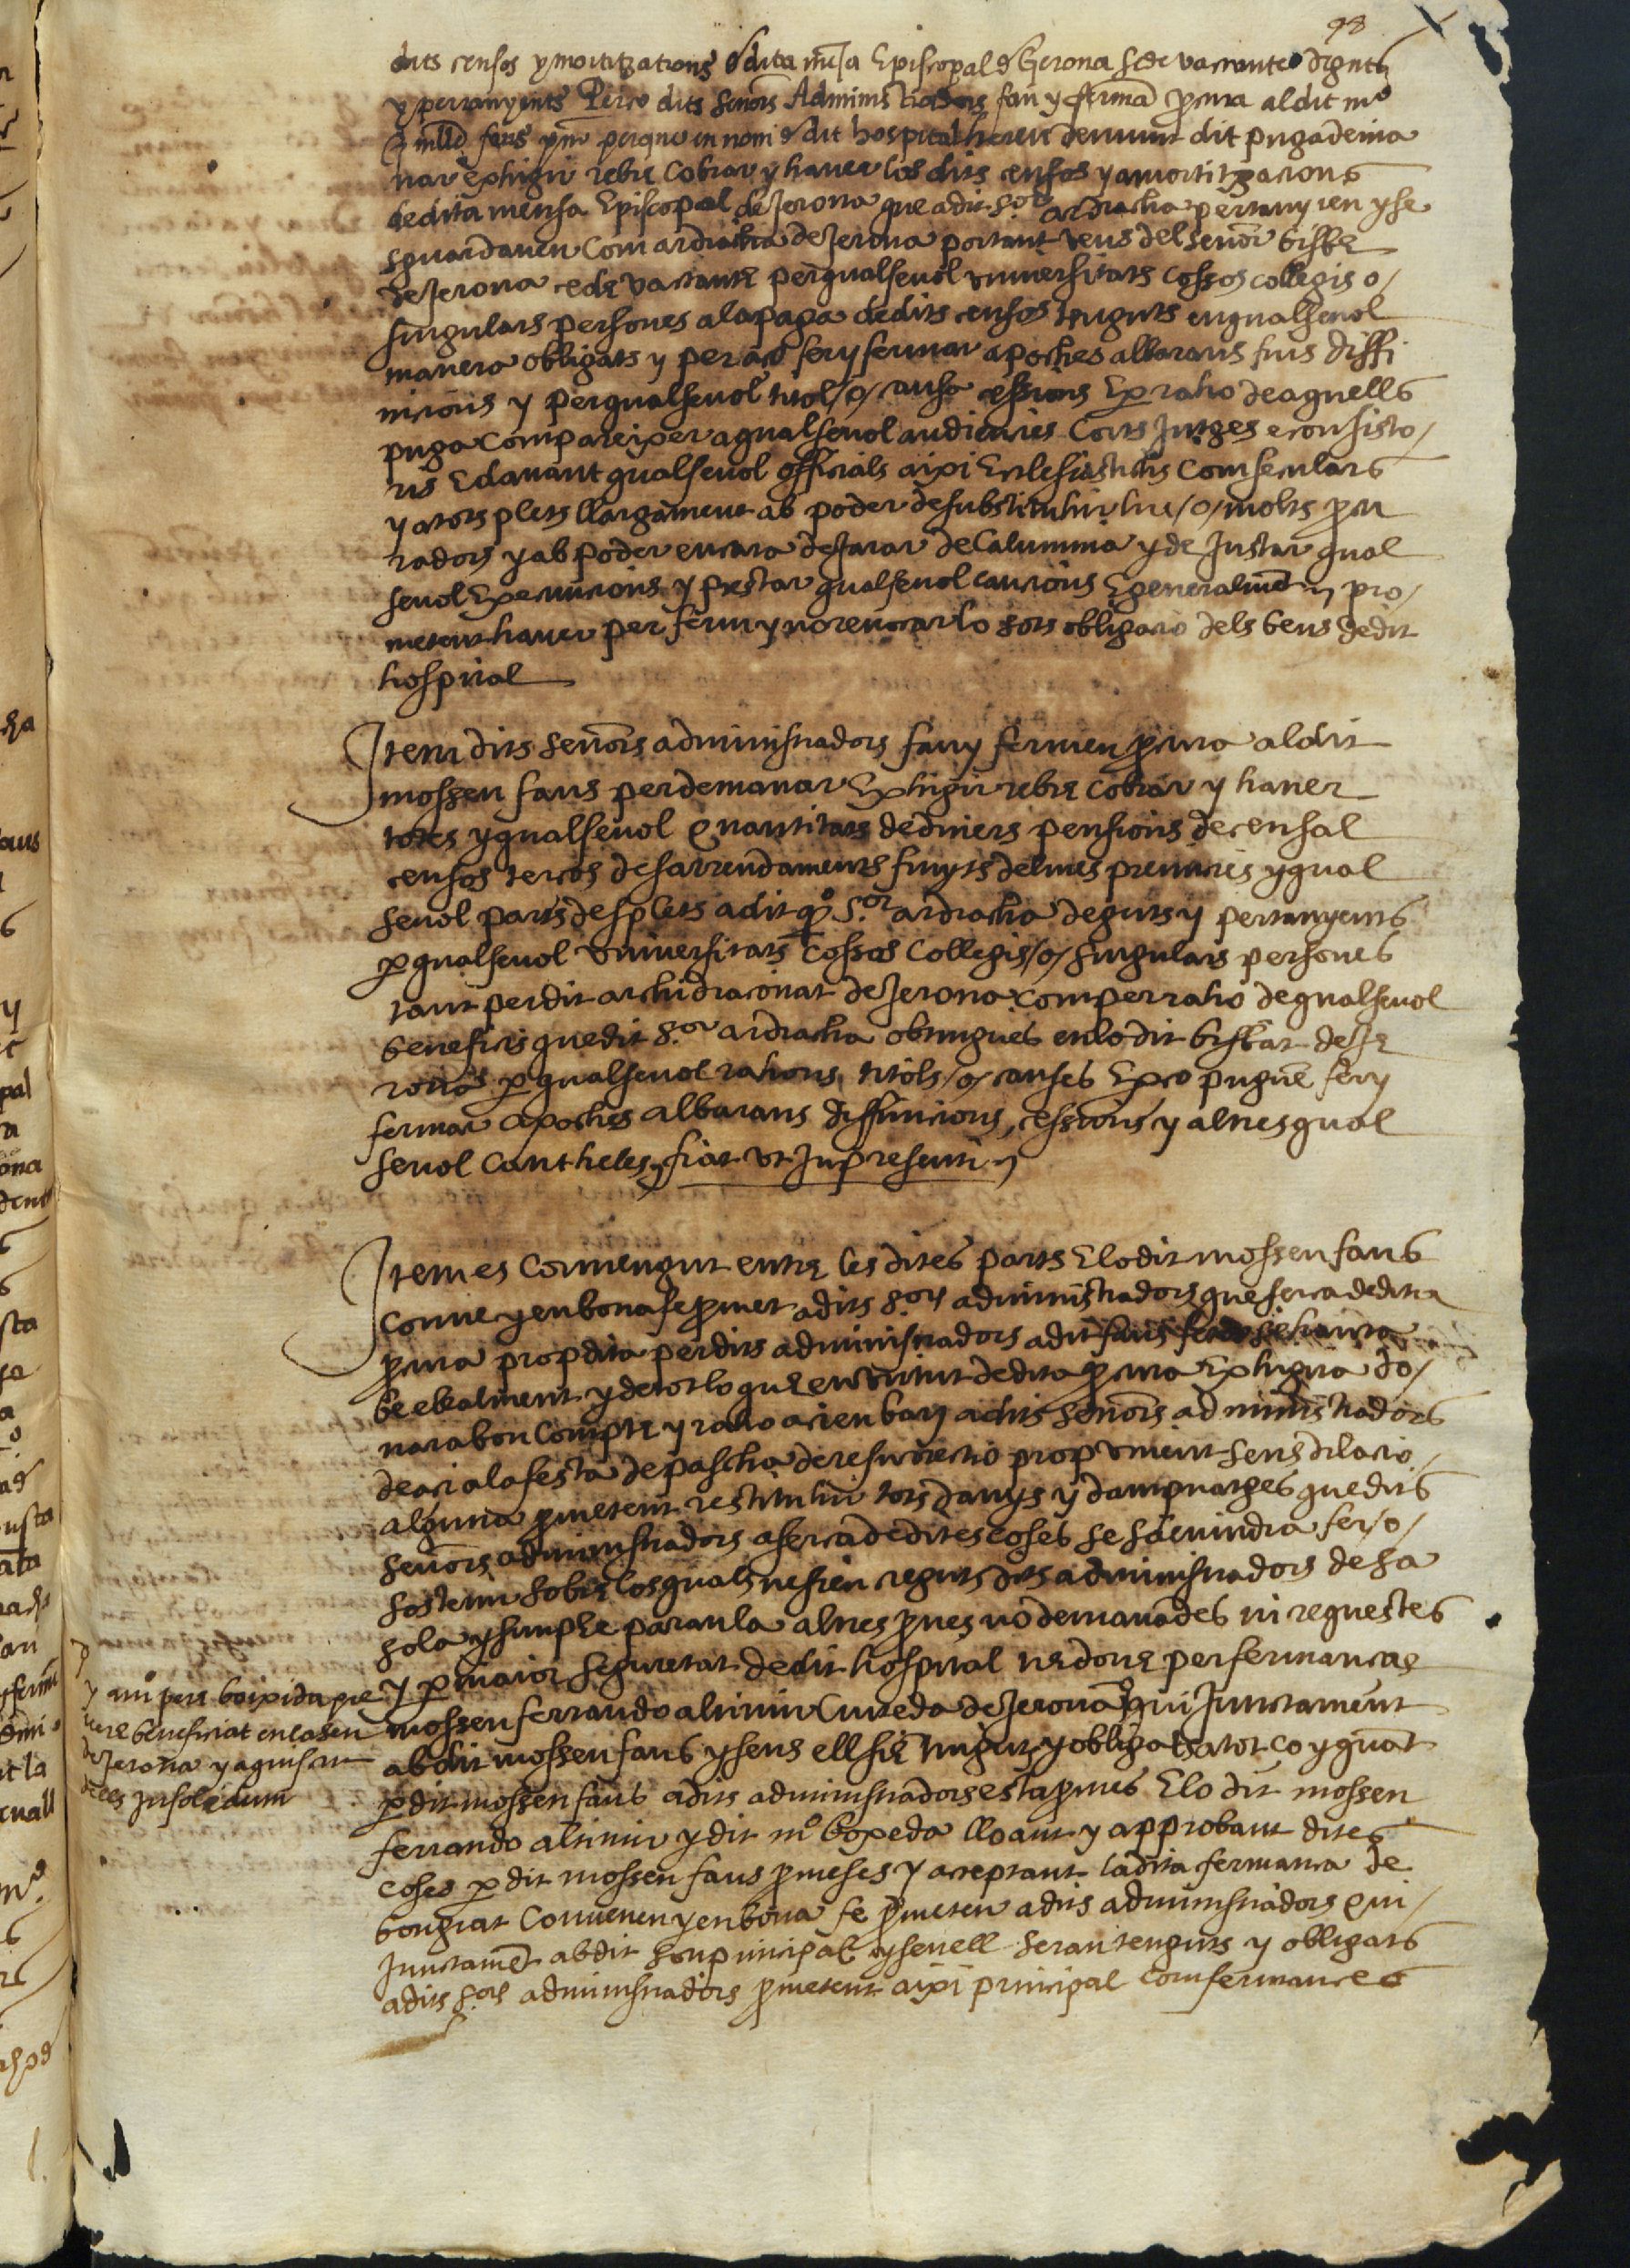 98
dits censos y mortitzations d dita mẽsa Episcopal d Gerona Sede vacante deguts
y pertanyents Perço dits senõrs Administradors fan y fermã ꝓcura al dit mº
faus perque en nom d dit hospital dit puga dema
nar exhigir rebre cobrar y haver los dits censos y amortitzacions
de dita mensa Episcopal de Jerona que a dit S.or ardiacha pertanyien y se
sguardaven com ardiacha de Jerona portant veus del senõr bisbe
de Jerona cede vacante per qualsevol universitats cossos collegis o/
singulars persones a la paga de dits censos tinguts en qualsevol
manera obligats y per aço fer y fermar apoches albarans fins diffi
nicions y per qualsevol titol /o/ causa cessions E per raho de aquells
puga compareixer a qualsevol audiencies Corts Jutges e consisto/
ris E davant qualsevol officials aixi Eclesiastichs com seculars
y a tots plets llargament ab poder de substituhir hu /o/ molts ꝓcu
radors y ab poder encara de Jurar de Calumnia y de Instar qual
sevol Execucions y prestar qualsevol caucions E generalmẽt y pro/
metent haver per ferm y no revocar lo sots obligacio dels bens de dit
hospital
Item dits senõrs administradors fan y fermen ꝓcura al dit
mossen faus per demanar Exhigir rebre cobrar y haver
totes y qualsevol quantitats de diners pensions de censal
censos tercos de sarrendaments fruyts delmes premicies y qual
sevol parts de splets a dit qº S.or ardiacha deguts y pertanyents
ꝑ qualsevol universitats cossos Collegis /o/ singulars persones
tant per dit archidiaconat de Jerona com per raho de qualsevol
beneficis que dit S.or ardiacha obtingues en lo dit bisbat de Je
rona ꝑ qualsevol rahons, titols /o/ causes E perço pugue fer y
fermar apoches albarans diffinicions, cessions y altres qual
sevol cautheles y fiat ut in presenti y
Item es convengut entre les dites parts E lo dit mossen faus
conve y en bona fe ꝓmet a dits S.ors administradors que serca de dita
ꝓcura prop dita per dits administradors a dit faus se haura
be e lealment y de tot lo que en virtut de dita ꝓcura Exhigira do/
nara bon compte y raho aci en bary a dits senõrs administradors
de aci a la festa de pascha de resurrectio prop vinent sens dilacio
alguna ꝓmetent restituhir tots danys y dampnatges que dits
senõrs administradors a serca de dites coses se sdevindra fer /o/
sostenir sobre los quals ne sien creguts dits administradors de sa
sola y simple paraula altres ꝓves no demanades ni requestes
y ꝑ maior seguretat de dit hospital ne done per fermança
mossen ferrando altimir Cureda de Jerona qui Junctament
ab dit mossen faus y sens ell sie tingut y obligat a tot ço y quãt
ꝑ dit mossen faus a dits administradors esta ꝓmes E lo dit mossen
ferrando altimir y dit mº boxeda lloant y approbant dites
coses ꝑ dit mossen faus ꝓmeses y acceptant la dita fermança de
bon grat Convenen y en bona fe ꝓmeten a dits administradors qui
Junctamẽt ab dit son principal y sens ell seran tenguts y obligats
a dits S.ors administradors ꝓmetent aixi principal com fermances
y a mº pere boixida pre
vere beneficiat en la seu
de Jerona y a quiscu
dells Insolidum